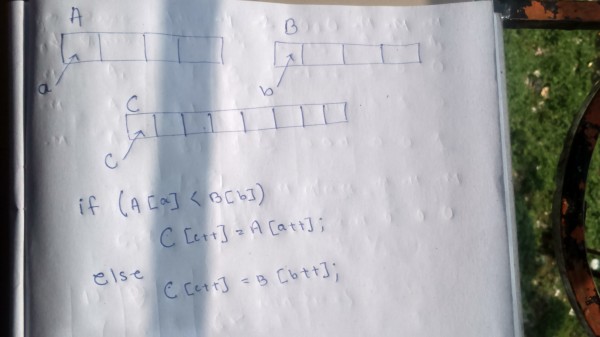 A
B
a
b
C
c
if (A[a] < B[b])
C[c++] = A[a++];
else C[c++] = B[b++];